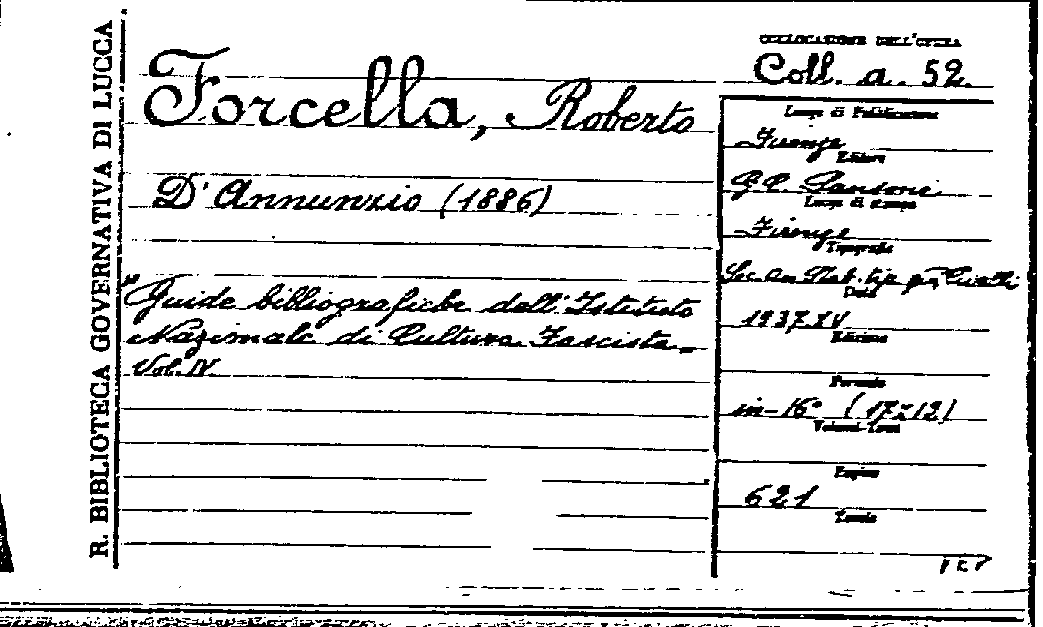 R. BIBLIOTECA GOVERNATIVA DI LUCCA
Forcella, Roberto
D'Annunzio (1886)
"Guide bibliografiche dell'Istituto
Nazionale di Cultura Fascista"
Vol. IV
COLLOCAZIONE DELL'OPERA
Coll. a. 52.
Luogo di Pubblicazione
Firenze
Editore
G. C. Sansoni
Luogo di stampa
Firenze
Tipografia
Soc. An. Stab. tip. già Civelli
Data
1937. XV
Edizione
Formato
in-16° (17x12)
Volumi-Tomi
Pagine
621
Tavole